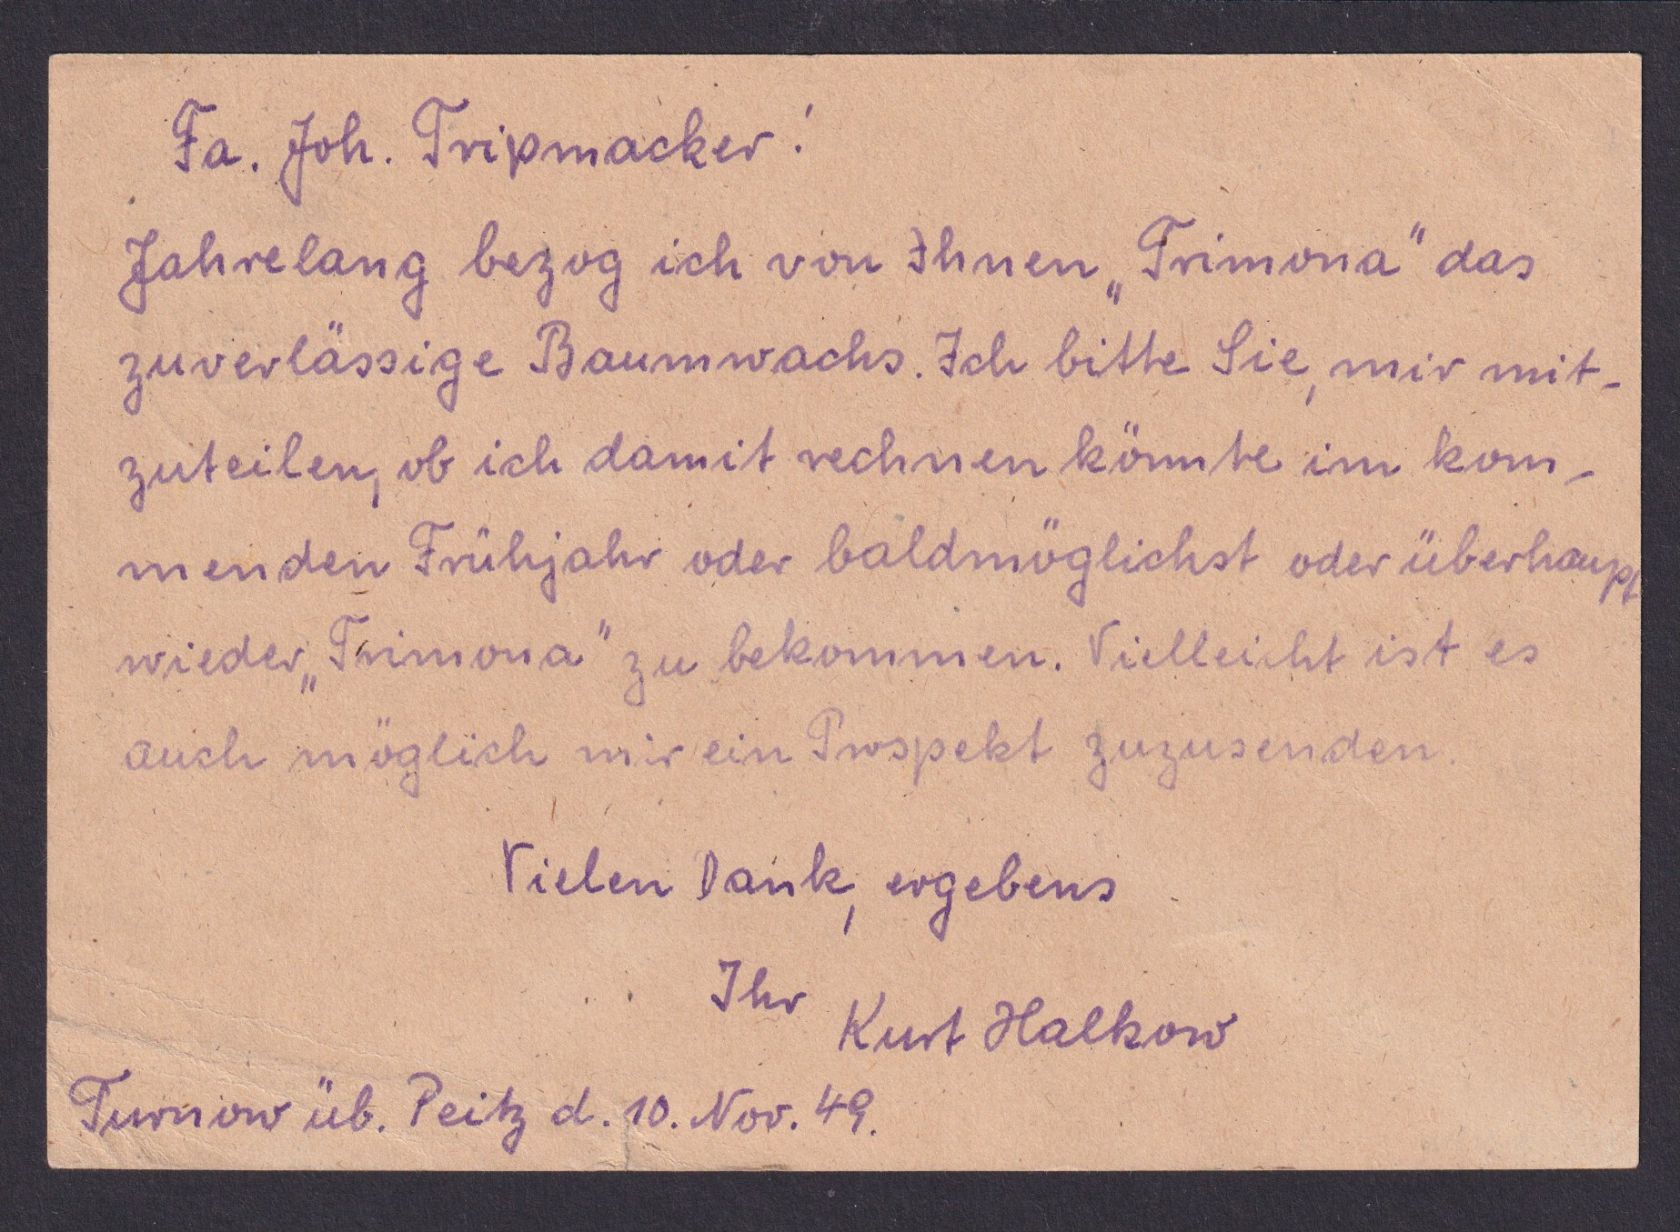 Fa. Joh. Tripmacker!
Jahrelang bezog ich von Ihnen „Trimona" das
zuverlässige Baumwachs. Ich bitte Sie, mir mit-
zuteilen, ob ich damit rechnen könnte im kom-
menden Frühjahr oder baldmöglichst oder überhaupt
wieder „Trimona" zu bekommen. Vielleicht ist es
auch möglich mir ein Prospekt zuzusenden.
Vielen Dank, ergebens
Ihr Kurt Halkow
Turnow üb. Peitz d. 10. Nov. 49.